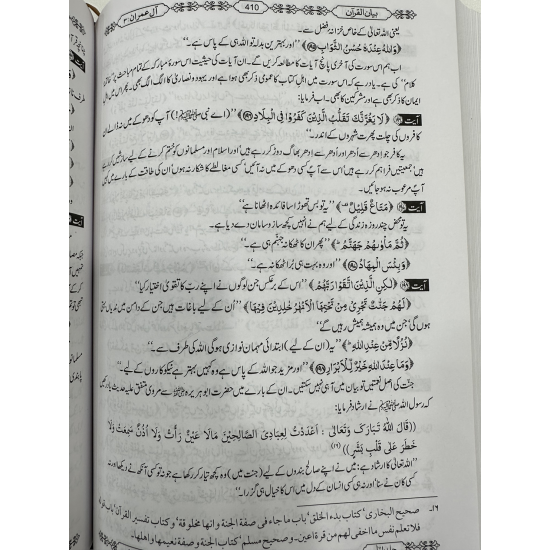 آل عمران:۳
410
بیان القرآن
یعنی اللہ تعالیٰ کے خاص خزانۂ فضل سے۔
﴿وَاللّٰهُ عِنْدَهٗ حُسْنُ الثَّوَابِ﴾ ’’اور بہترین بدلہ تو اللہ ہی کے پاس ہے۔‘‘
اب ہم اس سورت کی آخری پانچ آیات کا مطالعہ کریں گے۔ ان آیات کی حیثیت اس سورۂ مبارکہ کے تمام مباحث پر ’’خاتمۂ
کلام‘‘ کی ہے۔ یاد رہے کہ اس سورت میں اہل کتاب کا عمومی ذکر بھی ہے اور یہود و نصاریٰ کا الگ الگ بھی۔ پھر اس میں اہل
ایمان کا ذکر بھی ہے اور مشرکین کا بھی۔ اب فرمایا:
﴿لَا يَغُرَّنَّكَ تَقَلُّبُ الَّذِيْنَ كَفَرُوْا فِي الْبِلَادِ﴾ ’’(اے نبی ﷺ!) آپ کو دھوکے میں نہ ڈالے ان
کافروں کی چلت پھرت شہروں کے اندر۔‘‘
یہ کافر جو اِدھر سے اُدھر اور اُدھر سے اِدھر بھاگ دوڑ کر رہے ہیں‘ اور اسلام اور مسلمانوں کو ختم کرنے کے لیے سازشیں کر رہے
ہیں‘ جمعیتیں فراہم کر رہے ہیں‘ اس سے آپؐ کسی دھوکے میں نہ آئیں‘ کسی مغالطے کا شکار نہ ہوں‘ ان کی طاقت کے بارے میں کہیں
آپؐ مرعوب نہ ہو جائیں۔
﴿مَتَاعٌ قَلِيْلٌ﴾ ’’یہ تو بس تھوڑا سا فائدہ اٹھانا ہے‘‘
یہ تو محض چند روزہ زندگی کے لیے ہم نے انہیں کچھ ساز و سامان دے دیا ہے۔
﴿ثُمَّ مَاْوٰىهُمْ جَهَنَّمُ﴾ ’’پھر ان کا ٹھکانہ جہنم ہی ہے۔‘‘
﴿وَبِئْسَ الْمِهَادُ﴾ ’’اور وہ بہت ہی بُرا ٹھکانہ ہے۔‘‘
﴿لٰكِنِ الَّذِيْنَ اتَّقَوْا رَبَّهُمْ﴾ ’’اس کے برعکس جن لوگوں نے اپنے ربّ کا تقویٰ اختیار کیا‘‘
﴿لَهُمْ جَنّٰتٌ تَجْرِيْ مِنْ تَحْتِهَا الْاَنْهٰرُ خٰلِدِيْنَ فِيْهَا﴾ ’’اُن کے لیے باغات ہیں جن کے دامن میں ندیاں بہتی
ہوں گی‘ جن میں وہ ہمیشہ ہمیش رہیں گے‘‘
﴿نُزُلًا مِّنْ عِنْدِ اللّٰهِ﴾ ’’یہ (ان کے لیے) ابتدائی مہمان نوازی ہو گی اللہ کی طرف سے۔‘‘
﴿وَمَا عِنْدَ اللّٰهِ خَيْرٌ لِّلْاَبْرَارِ﴾ ’’اور مزید جو اللہ کے پاس ہے وہ کہیں بہتر ہے نیکوکاروں کے لیے۔‘‘
جنت کی اصل نعمتیں تو بیان میں آ ہی نہیں سکتیں۔ ان کے بارے میں حضرت ابوہریرہؓ سے مروی متفق علیہ حدیث یاد
کہ رسول اللہ ﷺ نے ارشاد فرمایا:
((قَالَ اللّٰهُ تَبَارَكَ وَتَعَالٰى : اَعْدَدْتُ لِعِبَادِى الصَّالِحِيْنَ مَالَا عَيْنٌ رَأَتْ وَلَا اُذُنٌ سَمِعَتْ وَلَا
خَطَرَ عَلٰى قَلْبِ بَشَرٍ))(۱۶)
’’اللہ تعالیٰ کا ارشاد ہے: میں نے اپنے صالح بندوں کے لیے (جنت میں) وہ کچھ تیار کر رکھا ہے جو نہ تو کسی آنکھ نے دیکھا اور نہ
کسی کان نے سنا‘ اور نہ ہی کسی انسان کے دل میں اس کا خیال ہی گزرا۔‘‘
۱۶۔ صحیح البخاری‘ کتاب بدء الخلق‘ باب ما جاء فی صفة الجنة وانھا مخلوقة‘ و کتاب تفسیر القرآن‘ باب قولہ
فلا تعلم نفس ما اخفی لھم من قرة اعین۔ و صحیح مسلم‘ کتاب الجنة وصفة نعیمھا واھلھا۔